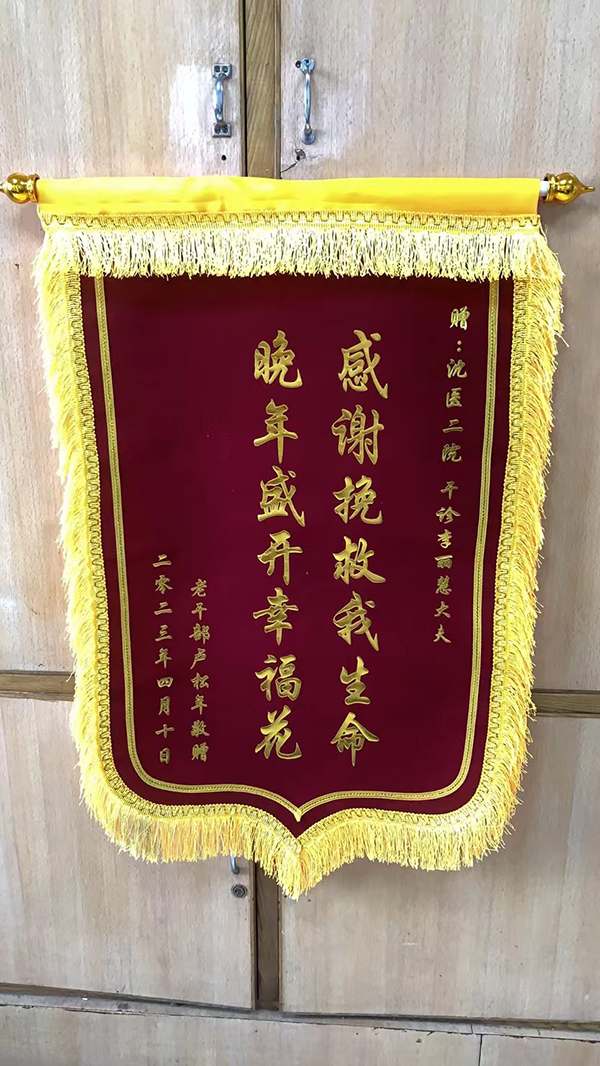 赠：沈医二院 干诊李丽慧大夫
感谢挽救我生命
晚年盛开幸福花
老干部卢松年敬赠
二零二三年四月十日